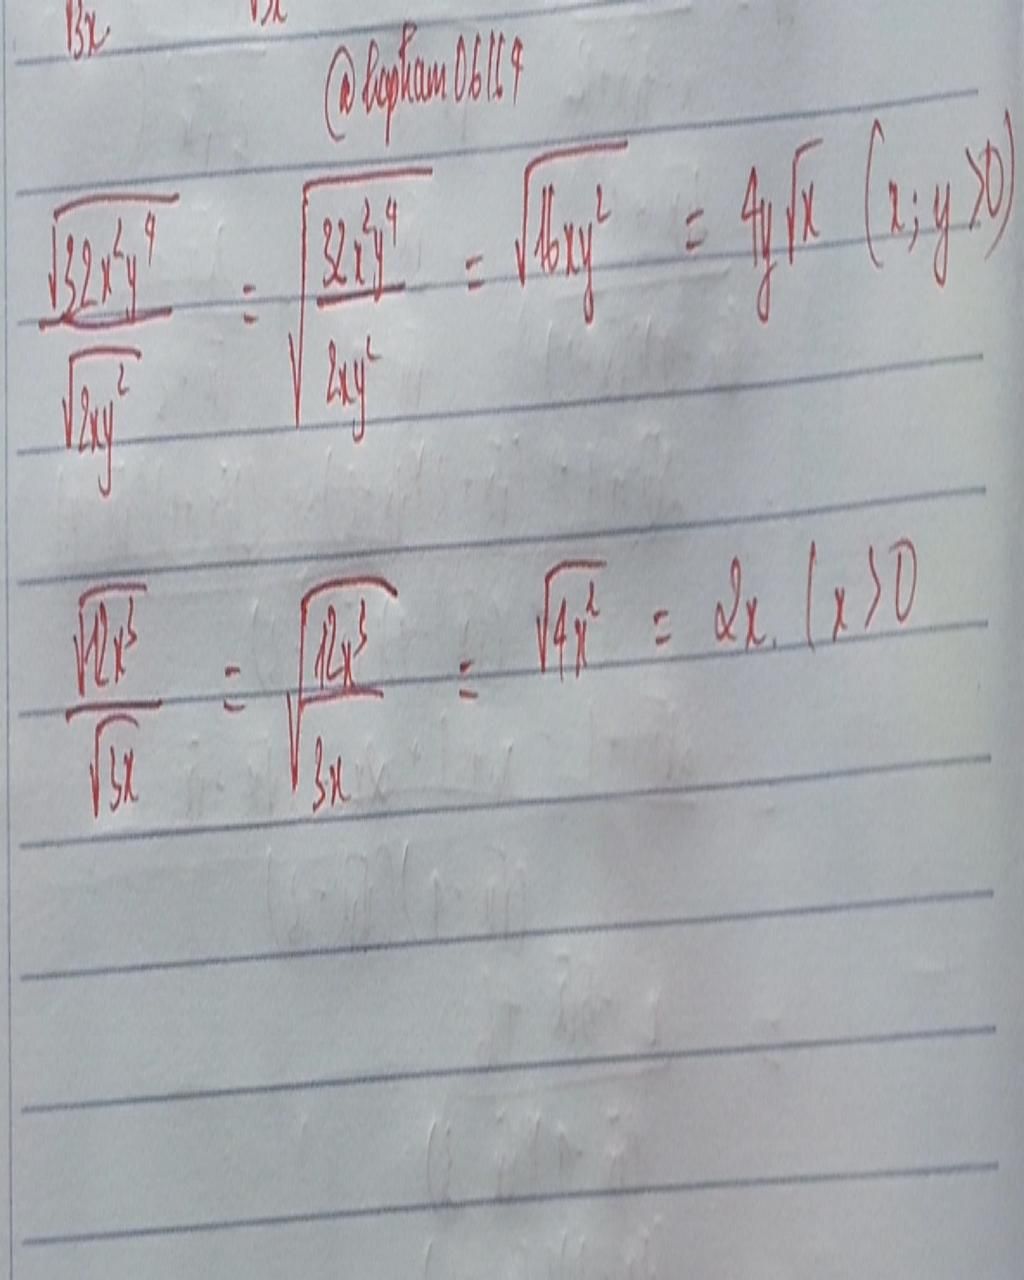 √3x √3x
√32x²y⁴ / √2xy² = √(32x²y⁴ / 2xy²) = √16xy² = 4y√x (x; y > 0)
√12x³ / √3x = √(12x³ / 3x) = √4x² = 2x. (x > 0